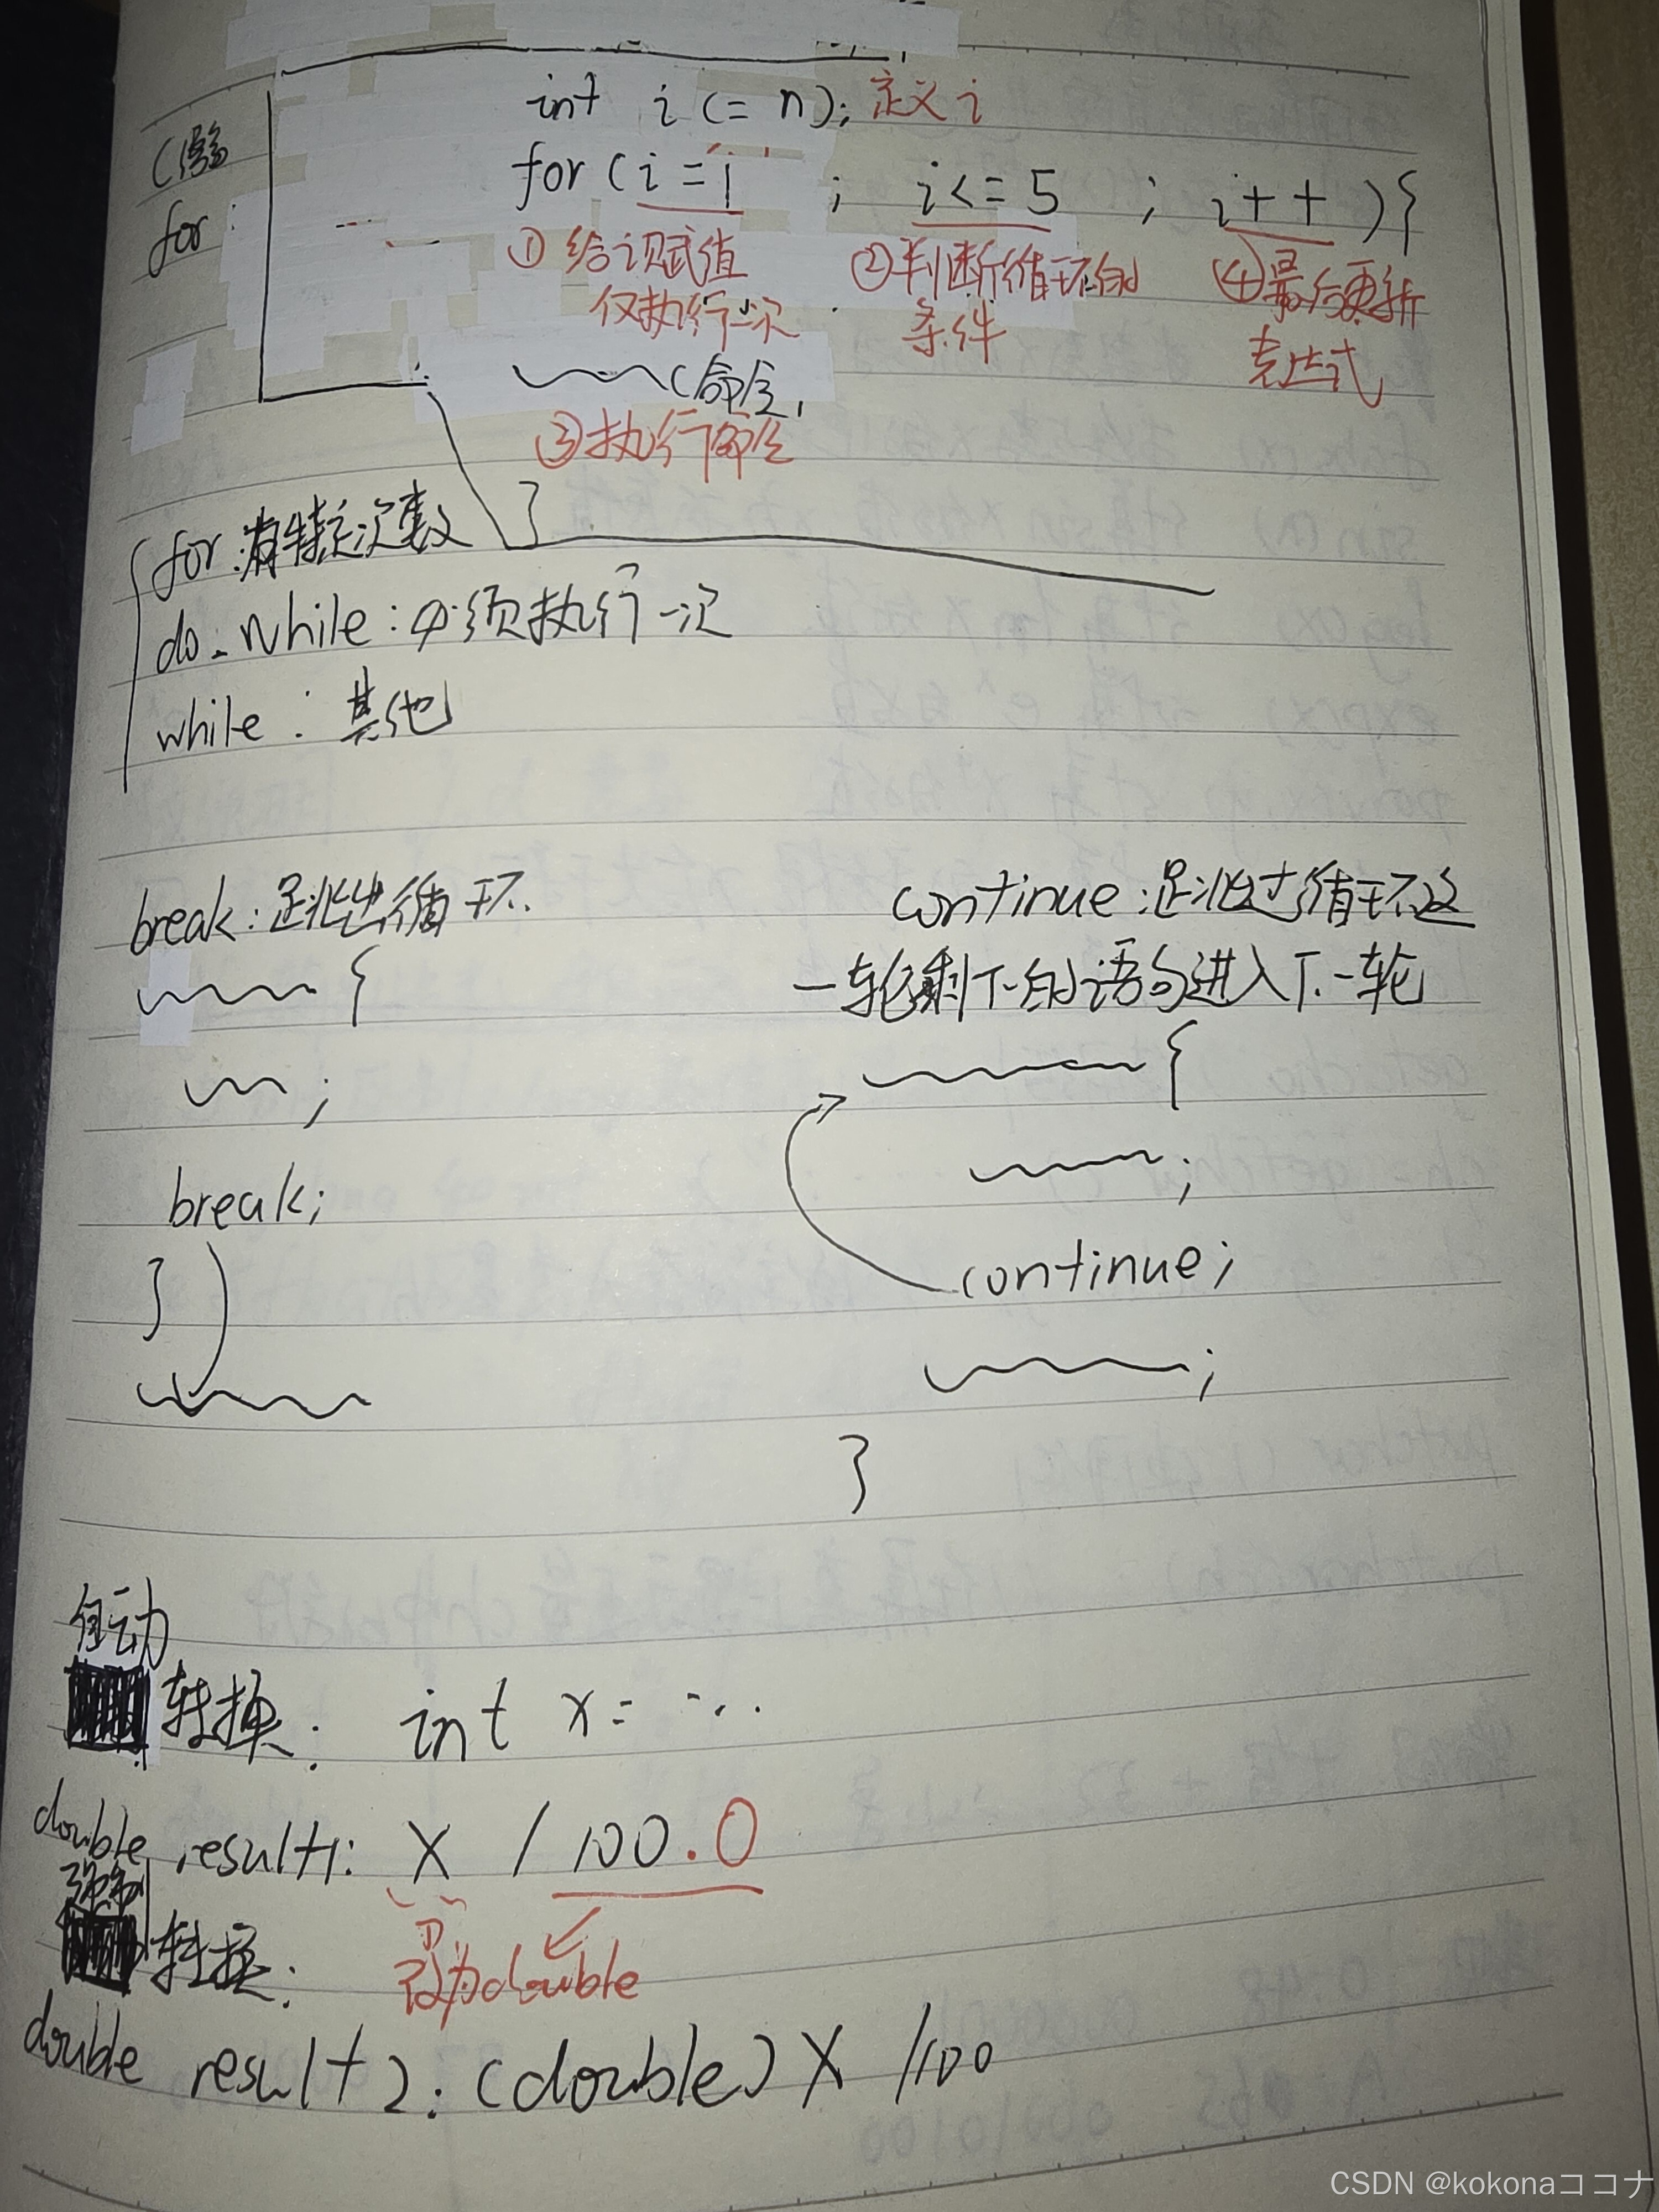 int i (= n); 定义i
for (i=1 ; i<=5 ; i++ ){
for:
①给i赋值 ②判断循环的 ④最后更新
仅执行一次 条件 表达式
(命令)
③执行命令
}
for:有特定次数
do_while:必须执行一次
while:其他
break:是跳出循环. continue:是跳过循环这
一轮剩下的语句进入下一轮
{
{
;
;
break;
continue;
}
;
}
自动
转换: int x= ...
double result1: X / 100.0
强制
转换: 设为double
double result2: (double) X /100
CSDN @kokonaココナ